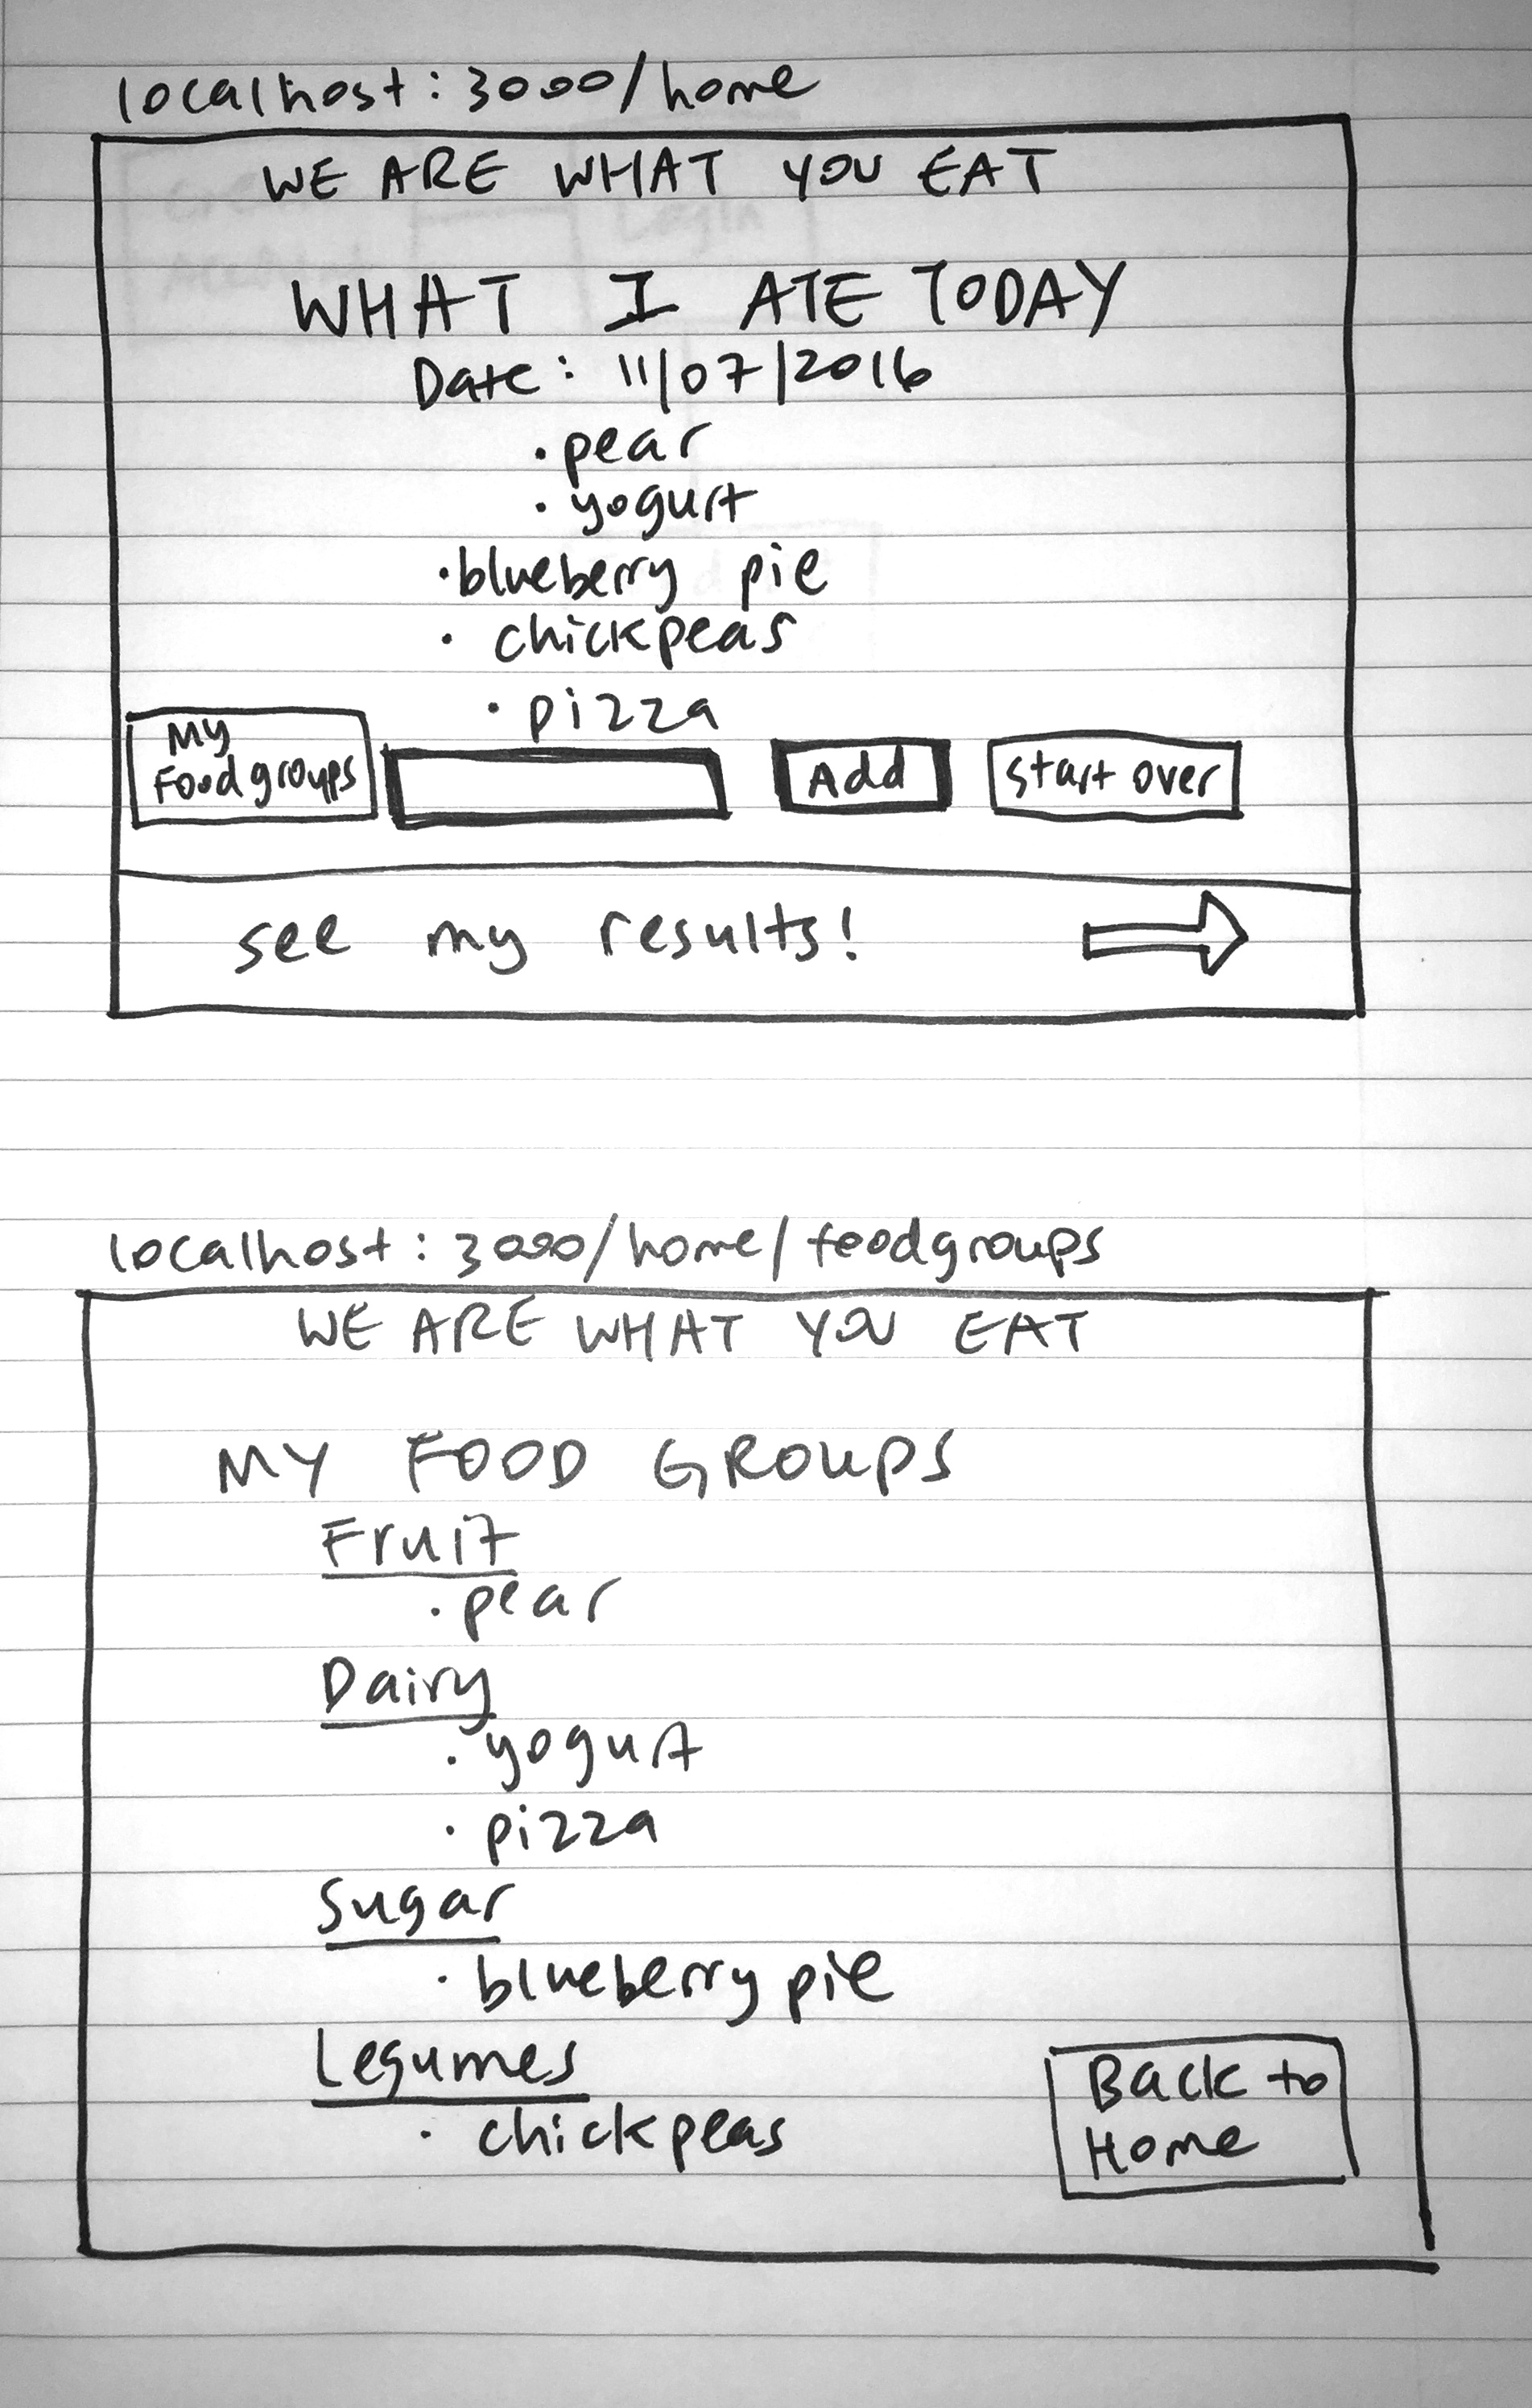 localhost:3000/home
WE ARE WHAT YOU EAT
WHAT I ATE TODAY
Date: 11/07/2016
· pear
· yogurt
· blueberry pie
· chickpeas
· pizza
My
Food groups
Add
Start over
see my results!
localhost:3000/home/foodgroups
WE ARE WHAT YOU EAT
MY FOOD GROUPS
Fruit
· pear
Dairy
· yogurt
· pizza
Sugar
· blueberry pie
Legumes
· chickpeas
Back to
Home